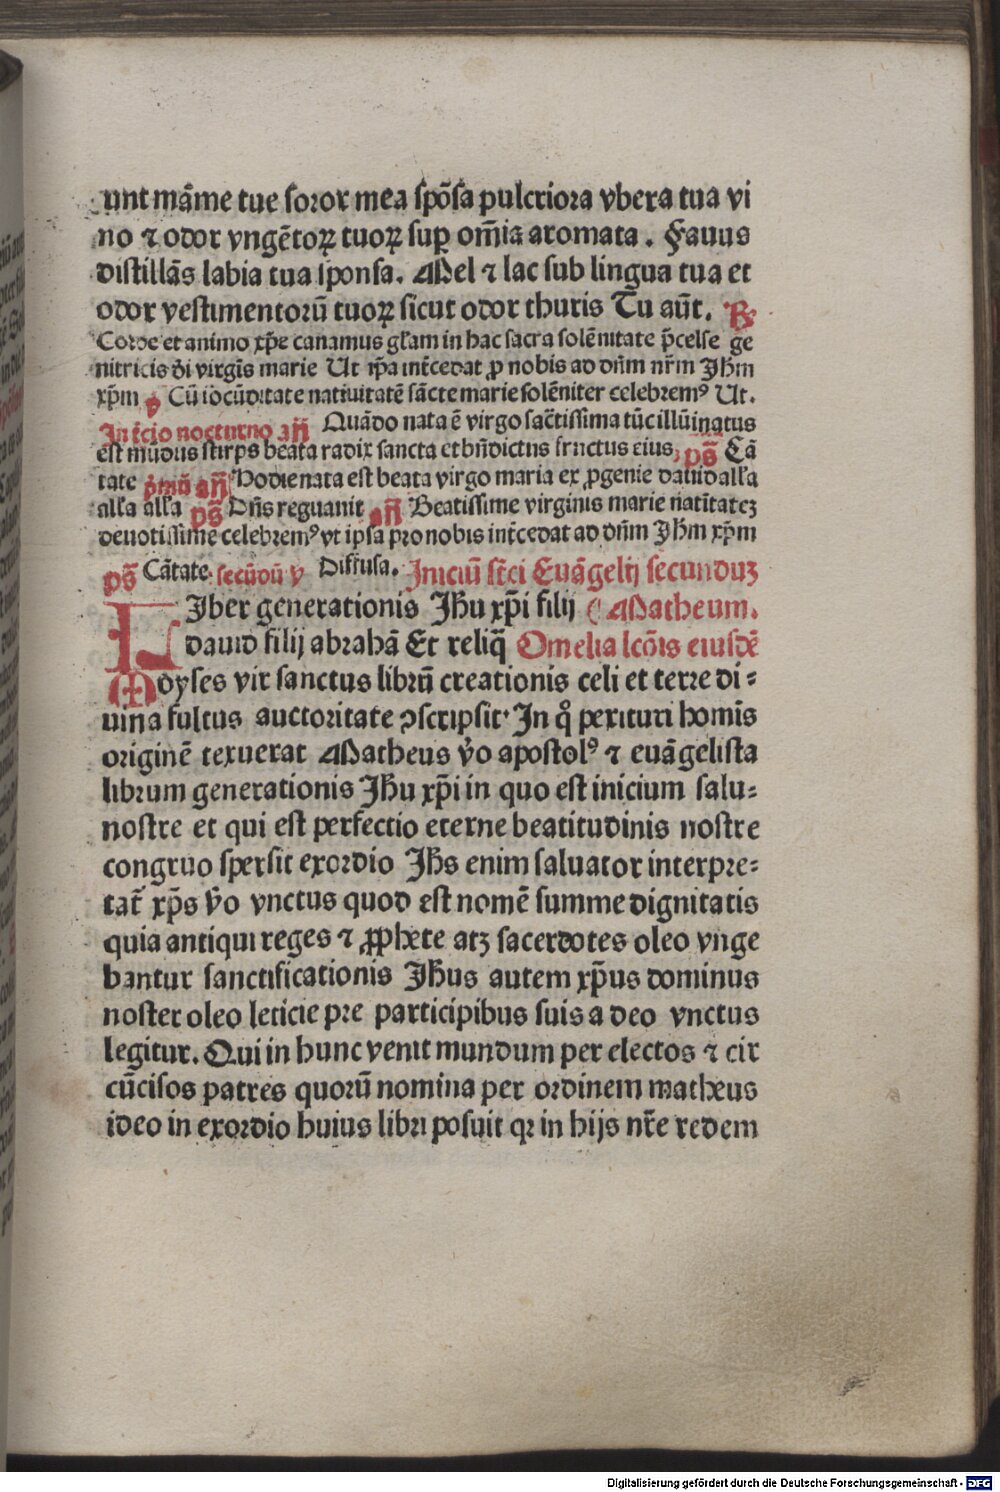 unt mām̄e tue soror mea spōsa pulcriora vbera tua vi
no ⁊ odor vngētoꝝ tuoꝝ suꝑ om̄ia aromata . Fauus
distillās labia tua sponsa. Mel ⁊ lac sub lingua tua et
odor vestimentorū tuoꝝ sicut odor thuris Tu aūt. ℟
Corde et animo xp̄e canamus gl̄am in hac sacra solēnitate p̄celse ge
nitricis d̄i virgīs marie Ut ip̄a int̄cedat ꝓ nobis ad dn̄m nr̄m Jh̄m
xp̄m ꝟ Cū iocūditate natiuitatē sācte marie solēniter celebremꝰ Ut.
In t̄cio nocturno an̄ Quādo nata ē virgo sac̄tissima tūc illūinatus
est mūdus stirps beata radix sancta et bn̄dictus fructus eius, ps̄ Cā
tate p̍mū an̄ Hodie nata est beata virgo maria ex ꝓgenie dauid all̄a
all̄a all̄a ps̄ Dn̄s regnauit an̄ Beatissime virginis marie natītateꝫ
deuotissime celebremꝰ vt ipsa pro nobis int̄cedat ad dn̄m Jh̄m xp̄m
ps̄ Cātate secūdū ꝟ Diffusa. Iniciū sc̄i Euāgelij secunduꝫ
LIber generationis Jh̄u xp̄i filij ( Matheum.
dauid filij abrahā Et reliq̄ Omelia lcōis eiusdē
Moyses vir sanctus librū creationis celi et terre di⸗
uina fultus auctoritate ꝯscripsit· In qͦ perituri homīs
originē texuerat Matheus v̊o apostolꝰ ⁊ euāgelista
librum generationis Jh̄u xp̄i in quo est inicium salu⸗
nostre et qui est perfectio eterne beatitudinis nostre
congruo spersit exordio Jh̄s enim saluator interpre⸗
tat̄ xp̄s v̊o vnctus quod est nomē summe dignitatis
quia antiqui reges ⁊ ꝓphete atꝫ sacerdotes oleo vnge
bantur sanctificationis Jh̄us autem xp̄us dominus
noster oleo leticie pre participibus suis a deo vnctus
legitur. Qui in hunc venit mundum per electos ⁊ cir
cūcisos patres quorū nomina per ordinem matheus
ideo in exordio huius libri posuit qꝛ in hijs nr̄e redem
Digitalisierung gefördert durch die Deutsche Forschungsgemeinschaft - DFG